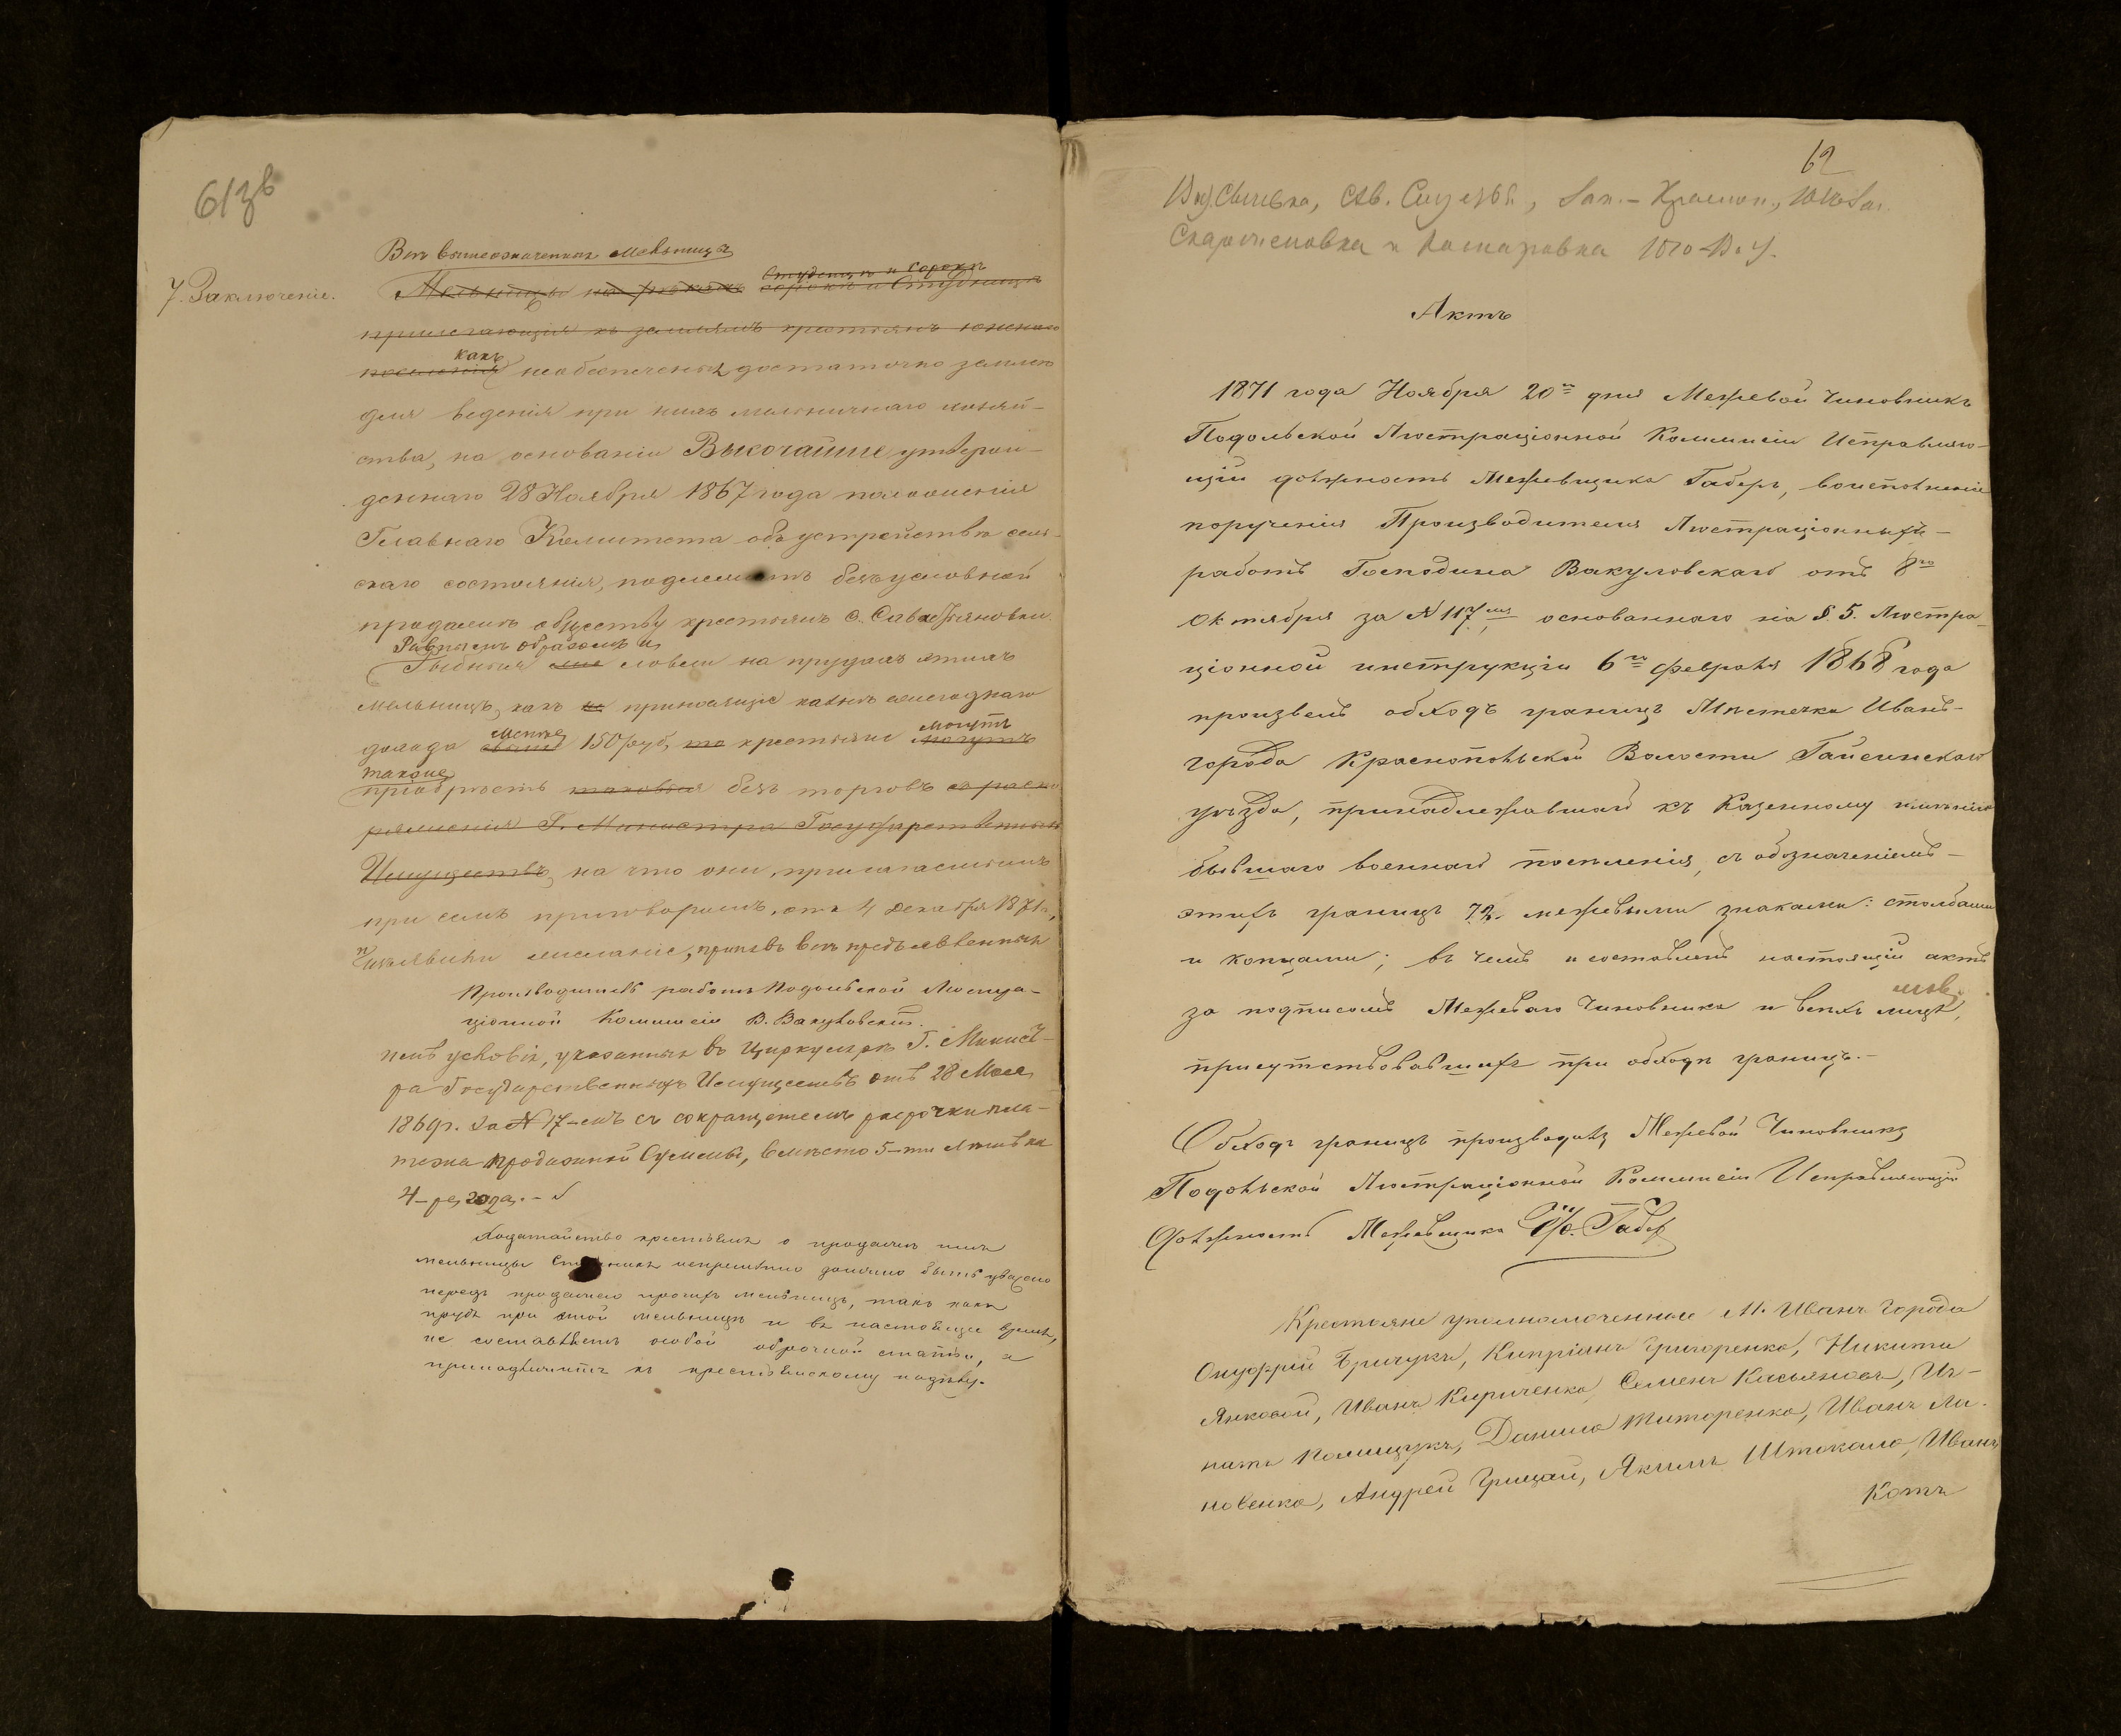 61зв
Всѣ вышеозначенныя мельницы
7. Заключеніе.
Студенцъ и Сорокъ
Мельницы на рѣкахъ сорокъ и Студенцъ
прилегающія къ землямъ крестьянъ южнаго
какъ
поселенія необезпеченныя достаточно землею
для веденія при нихъ мельничнаго хозяй-
ства, на основаніи Высочайше утверж-
деннаго 28 Ноября 1867 года положенія
Главнаго Комитета объ устройствѣ сель-
скаго состоянія, подлежатъ безъусловной
продажѣ обществу крестьянъ с. Савостьяновки
Равнымъ образомъ и
Рыбныя ловли на прудахъ этихъ
мельницъ, какъ приносящіе каждый ежегоднаго
менѣе могутъ
дохода свыше 150 руб, то крестьяне могутъ
таковые
пріобрѣсть таковыя безъ торговъ съ разрѣ
шенія Г. Министра Государственныхъ
Имуществъ, на что они, прилагаемымъ
при семъ приговоромъ, отъ 4 Декабря 1871 г.,
изъявили желаніе, принявъ всѣ предъявленныя
Производитель работъ Подольской Люстра-
ціонной Коммисіи В. Вакуловскій.
имъ условія, указанныя въ Циркулярѣ Г. Минист-
ра Государственныхъ Имуществъ отъ 28 Мая
1869 г. за № 17-мъ съ сокращеніемъ разрочки пла-
тежа продажной суммы, вмѣсто 5-ти лѣтъ на
4-ре года.-
Ходатайство крестьянъ о продажѣ имъ
мельницы непремѣнно должно быть уважено
передъ продажею прочихъ мельницъ, такъ какъ
прудъ при этой мельницѣ и въ настоящее время,
не составляетъ особой оброчной статьи, а
принадлежитъ къ крестьянскому надѣлу.
62
Акте
1871 года Ноября 20го дня Межевой Чиновникъ
Подольской Люстраціонной Коммисіи Исправляю-
щій должность Межевщика Габеръ, воисполненіе
порученія Производителя Люстраціонныхъ-
работъ Господина Вакуловскаго отъ 8го
Октября за № 117мъ, основаннаго на § 5. Люстра-
ціонной инструкціи 6го февраля 1868 года
произвелъ обходъ границъ Мѣстечка Иванъ-
города Краснопольской Волости Гайсинскаго
уѣзда, принадлежавшаго къ Казенному имѣнію
бывшаго военнаго поселенія, съ обозначеніемъ-
этихъ границъ 72. межевыми знаками: столбами
и копцами; въ чемъ и составленъ настоящій актъ
за подписомъ Межеваго Чиновника и всѣхъ лицъ,
присутствовавшихъ при обходѣ границъ.-
Обходъ границъ производилъ Межевой Чиновникъ
Подольской Люстраціонной Коммисіи Исправляющій
Должность Межевщика Габеръ
Крестьяне уполномоченные М. Иванъ города
Онуфрій Бричукъ, Кипріанъ Григоренко, Никита
Янковой, Иванъ Кириченко, Семенъ Касьяновъ, Иг-
натъ Полищукъ, Данило Титоренко, Иванъ Ла-
новенко, Андрей Грицай, Якимъ Штокало, Иванъ
Котъ